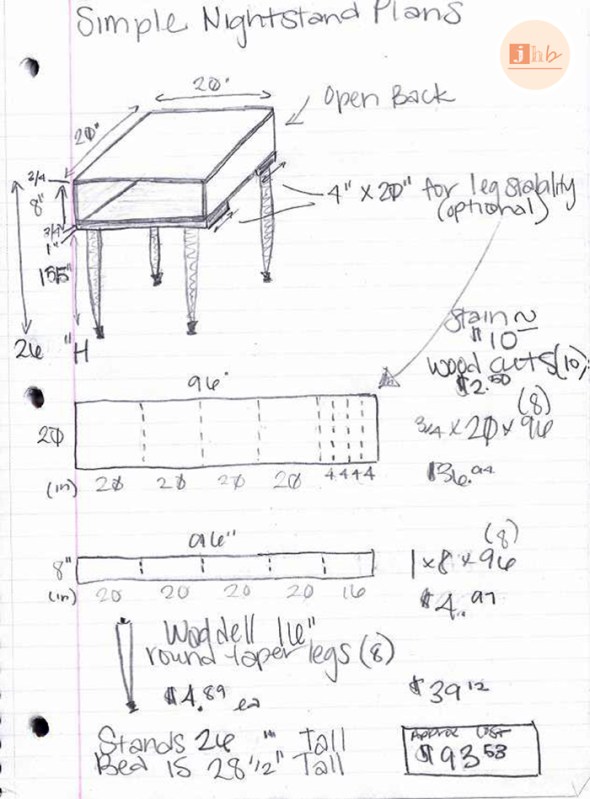 Simple Nightstand Plans
jhb
20"
Open Back
20"
3/4
8"
4" x 20" for leg stability
(optional)
3/4"
1"
26 "H
Stain ~
$10
wood cuts (10):
$2.50
96"
(8)
20
3/4 x 20 x 96
$36.94
(in) 20 20 20 20 4 4 4 4
96"
(8)
8"
1 x 8 x 96
(in) 20 20 20 20 16
$4.97
Waddell 16"
round taper legs (8)
$4.89 ea
$39.12
Stands 26 "" Tall
Approx Cost
$93.53
Bed is 28 1/2" Tall